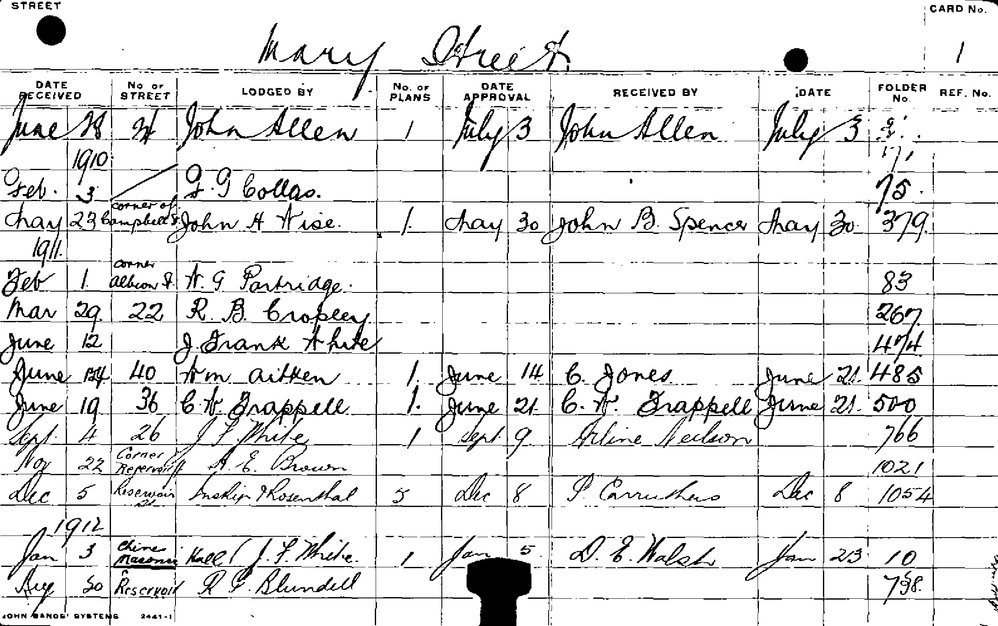 STREET
CARD No.
Mary Street
1
DATE RECEIVED No OF STREET LODGED BY No. OF PLANS DATE APPROVAL RECEIVED BY DATE FOLDER No. REF. No.
June 28 John Allen 1 July 3 John Allen July 3
1910
Feb. 3 Collas. 75
May 23 corner of Campbell St John H Wise. 1. May 30 John B. Spencer May 30. 379.
1911.
Feb 1. corner Albion St W. G Partridge. 83
Mar 29. 22 R. B. Cropley 267
June 12 J. Frank White 474
June 40 Wm Aitken 1. June 14 C. Jones June 21. 485
June 19 36 C. W. Trappell 1. June 21. C. W. Trappell June 21. 500
Sept. 4 26 J F White 1 Sept. 9. Neilson 766
Nov 22 Corner Reservoir St A. E. Brown 1021
Dec 5 Reservoir St Inskip & Rosenthal 5 Dec 8 P Carruthers Dec 8 1054
1912
Jan 3 Chine Masonic Hall (J. F White 1 Jan 5 D. E. Walsh Jan 23 10
Aug 20 Reservoir R. F. Blundell
JOHN SANDS' SYSTEMS 2441-1